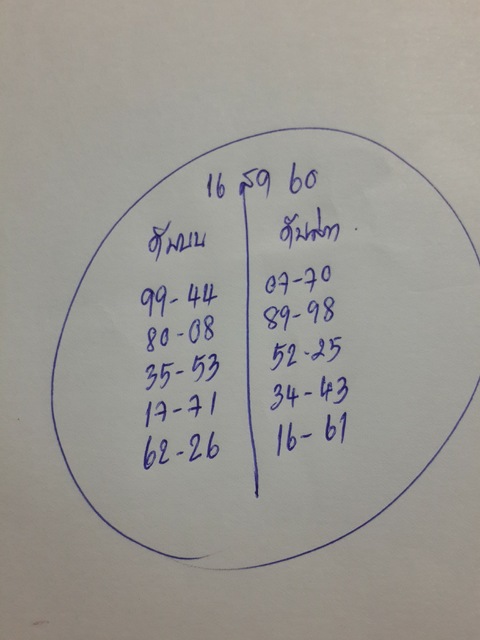 16 สค 60
ดับบน ดับล่าง
99-44 07-70
80-08 89-98
35-53 52-25
17-71 34-43
62-26 16-61